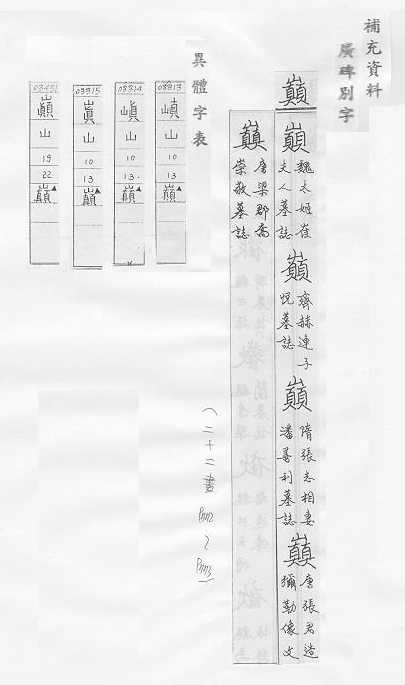 補充資料
廣碑別字
巔
巔 魏太姬崔夫人墓誌
巔 齊赫連子悅墓誌
巔 隋張志相妻潘善利墓誌
巔 唐張君造彌勒像文
巔 唐梁郡喬崇敬墓誌
(二十二畫
異體字表
03313
嵮
山
10
13
巔
03314
山
10
13
巔
03315
山
10
13
巔
巔
山
19
22
巔